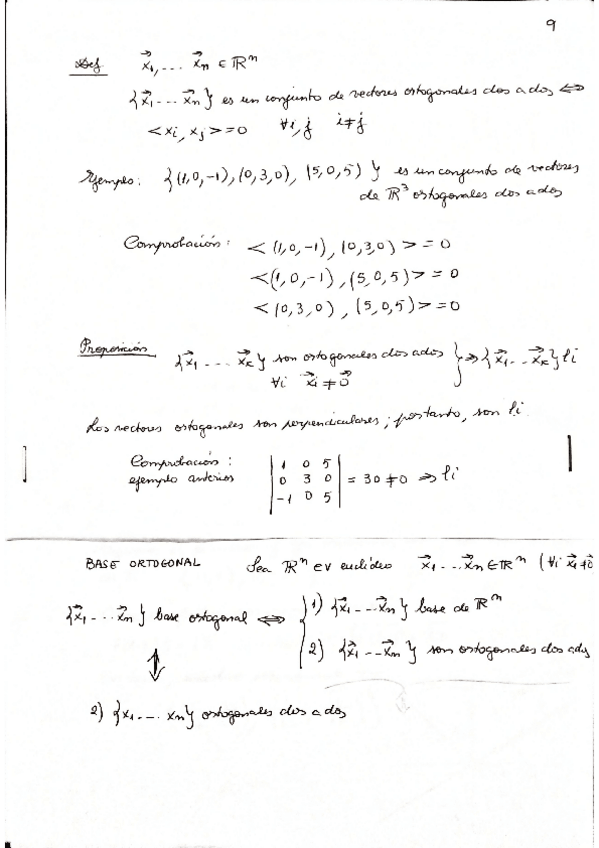 9
Def x⃗1, ... x⃗n ∈ ℝⁿ
{x⃗1 ... x⃗n} es un conjunto de vectores ortogonales dos a dos ⇔
< xi, xj > = 0 ∀i,j i≠j
Ejemplo: {(1,0,-1), (0,3,0), (5,0,5)} es un conjunto de vectores
de ℝ³ ortogonales dos a dos
Comprobación: < (1,0,-1), (0,3,0) > = 0
< (1,0,-1), (5,0,5) > = 0
< (0,3,0), (5,0,5) > = 0
Proposición {x⃗1 ... x⃗k} son ortogonales dos a dos } ⇒ {x⃗1 ... x⃗k} li
∀i x⃗i ≠ 0⃗
Los vectores ortogonales son perpendiculares; por tanto, son li.
Comprobación: | 1 0 5 |
ejemplo anterior | 0 3 0 | = 30 ≠ 0 ⇒ li
| -1 0 5 |
BASE ORTOGONAL Sea ℝⁿ ev euclídeo x⃗1 ... x⃗n ∈ ℝⁿ (∀i x⃗i ≠ 0
{x⃗1 ... x⃗n} base ortogonal ⇔ { 1) {x⃗1 ... x⃗n} base de ℝⁿ
2) {x⃗1 ... x⃗n} son ortogonales dos a dos
⇕
2) {x1 ... xn} ortogonales dos a dos